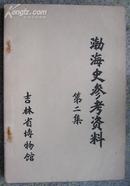 渤海史参考资料
第二集
吉林省博物馆